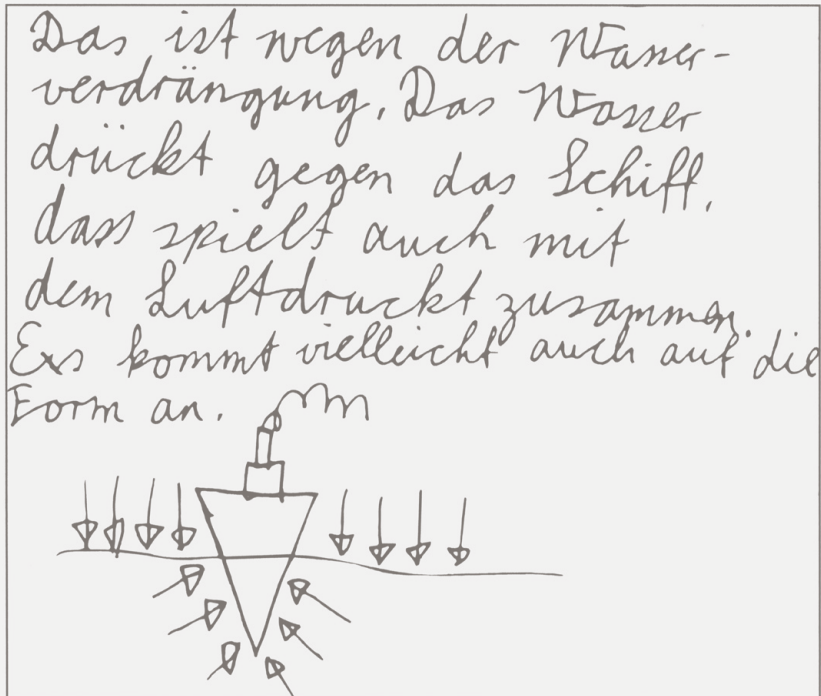 Das ist wegen der Wasser-
verdrängung. Das Wasser
drückt gegen das Schiff,
dass spielt auch mit
dem Luftdruckt zusammen.
Exs kommt vielleicht auch auf die
Form an.